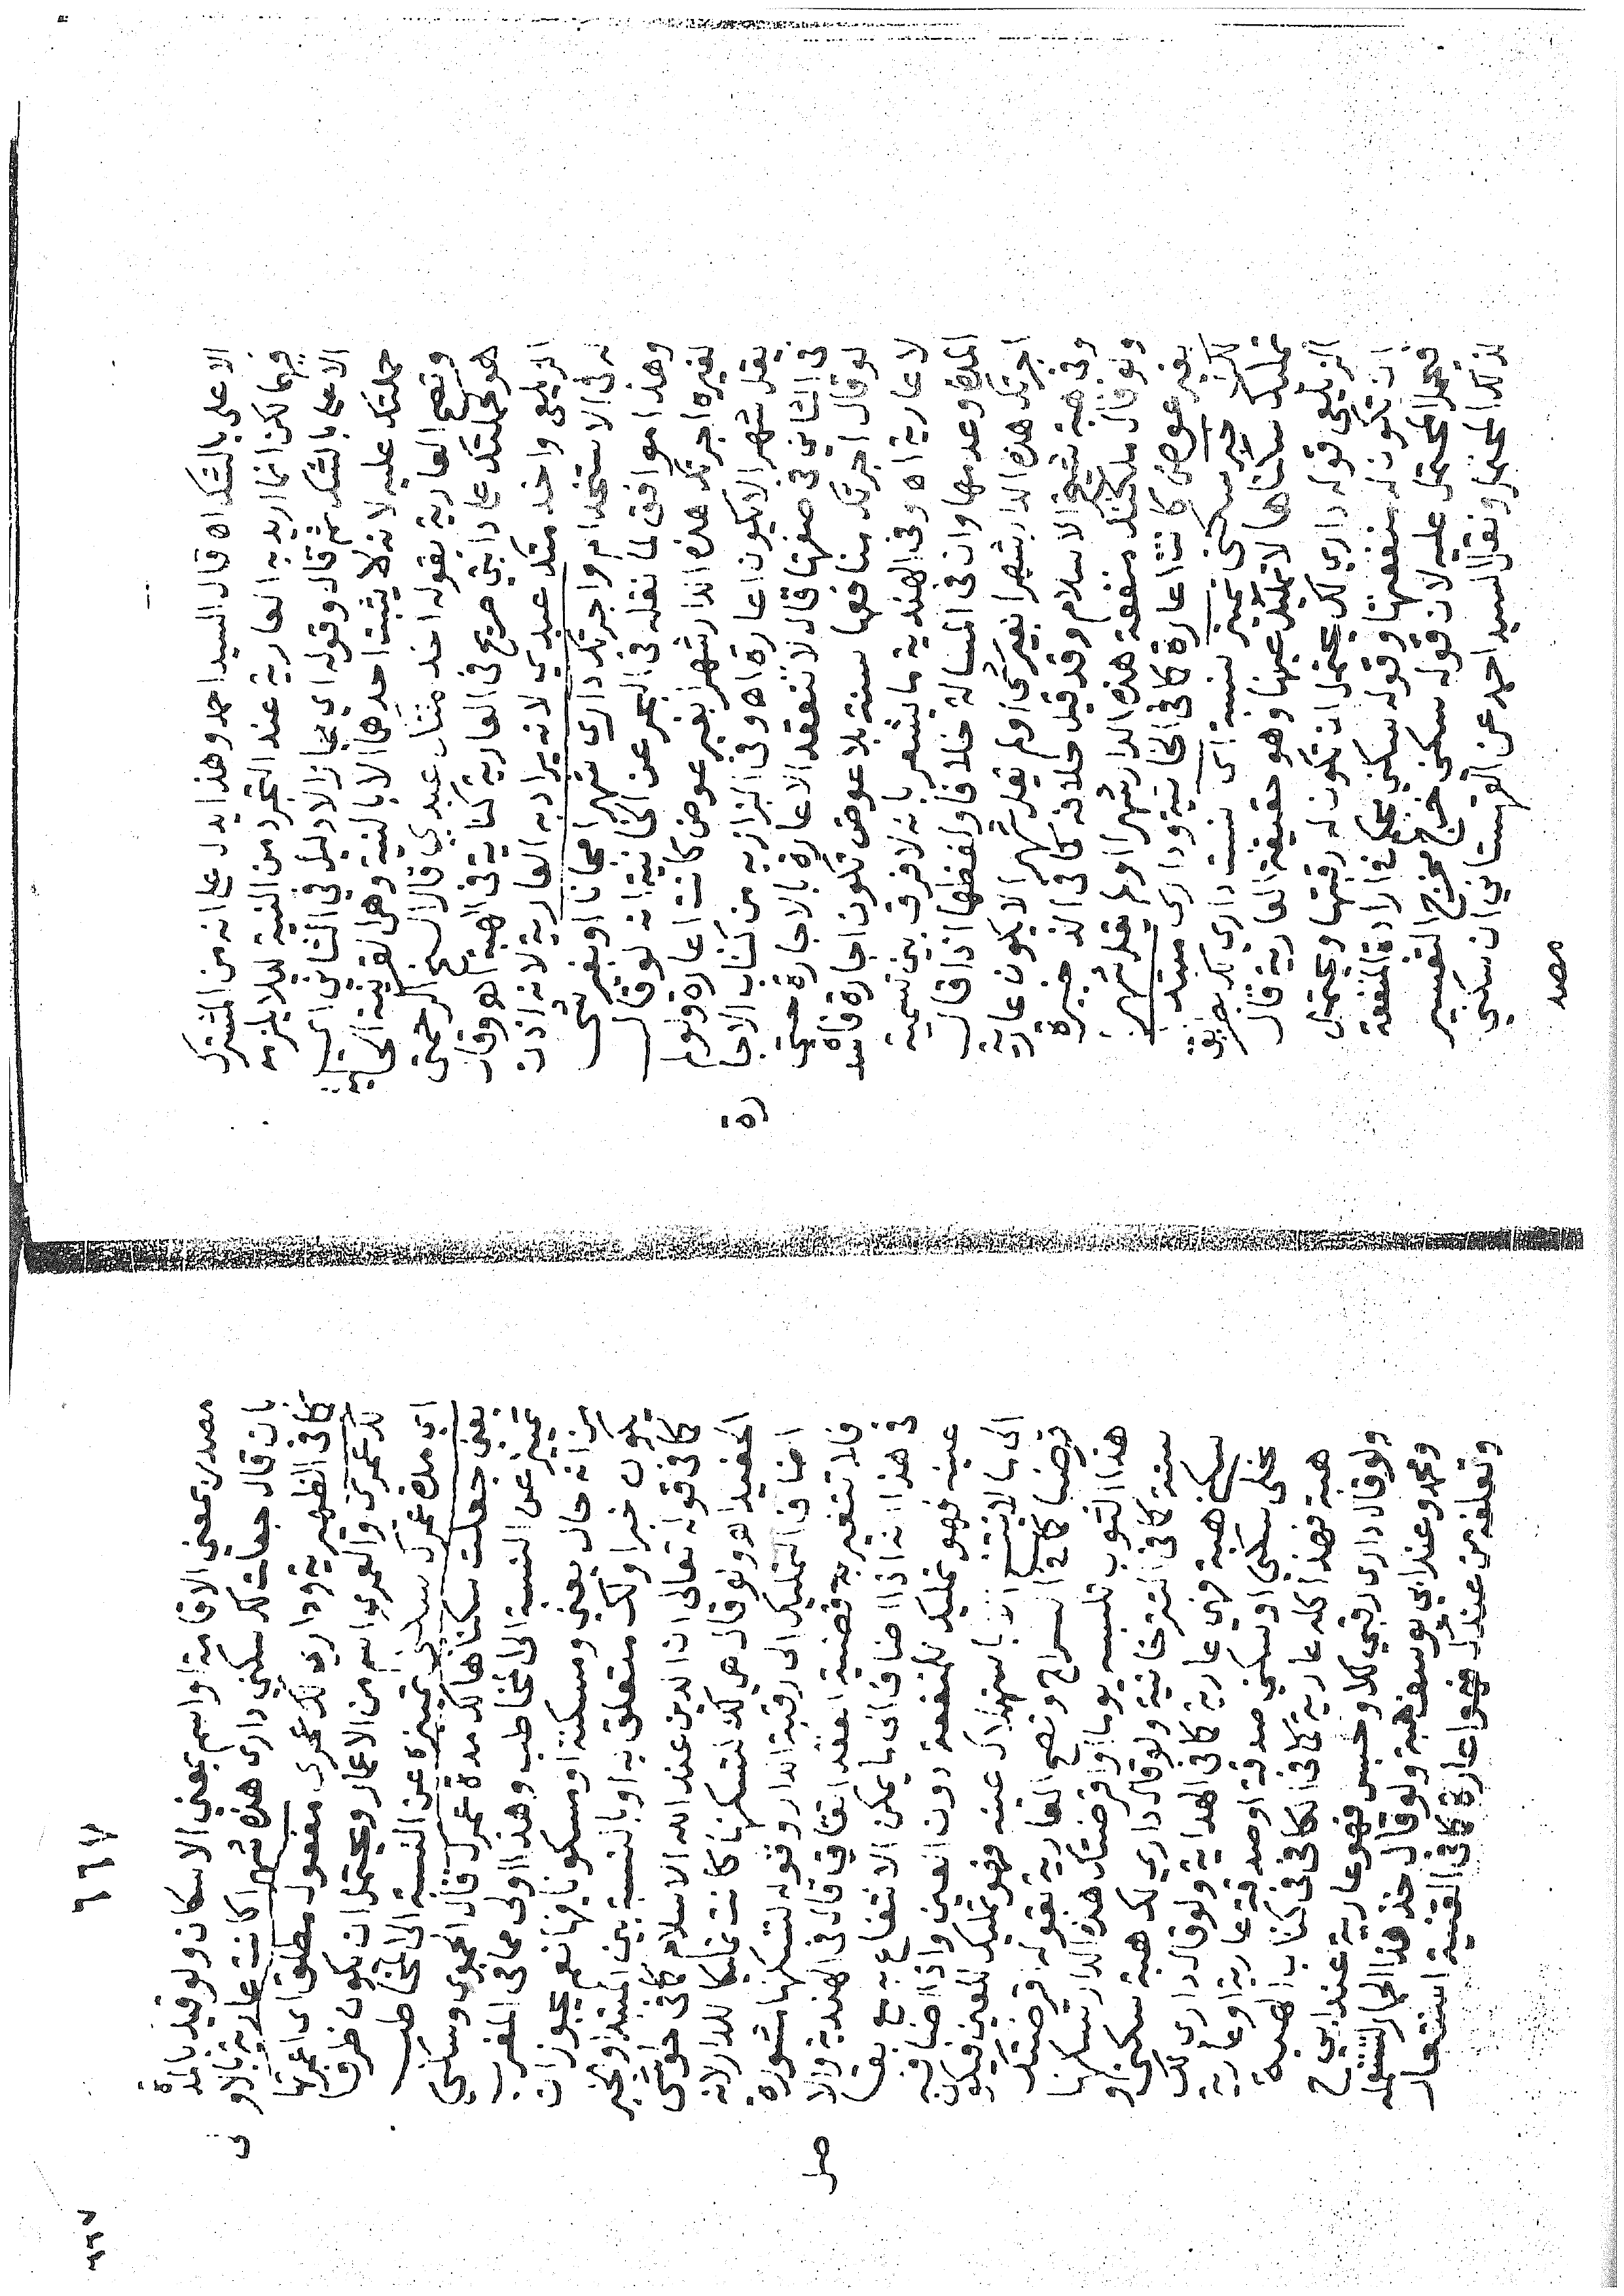 الاعلى بالشك اه قال السيد احمد وهذا يدل على انه من المشترك
فيهما لكن انما اريد به العارية عند التجرد من النية لئلا يلزمه
الاعلى بالشك ثم قال وقوله اي مجازا لا دليل في الثاني اي
حملتك عليه لانه لا يثبت احدهما الا بالنية وهل لقرينة
وتصح العارية بقوله اخدمتك عبدي قال الشيخ الرحمتي
هو حملتك على دابتي صريح في العارية كناية في الهبة اه وقال
الزيلعي واخدمتك عبدي لانه يراد به العارية لانه اذن
له في الاستخدام واجرتك داري شهرا مجانا او بغير شي
وهذا موافق لما نقله في البحر عن الخانية انه لو قال
لغيره اجرتك هذه الدار شهرا بغير عوض كانت اعارة ولو لم
يقل شهرا لا يكون اعارة اه وفي البزازية من كتاب الاجا
رة
في الثاني في صفتها قال لا تنعقد الاعارة بالاجارة حتى
لو قال اجرتك منافعها سنة بلا عوض تكون اجارة فاسد
لا عارية اه وفي الهندية ما يشعر بانه لا فرق بين تسمية
المدة وعدمها وان في المسالة خلافا ولفظها اذا قال
اجرتك هذه الدار شهرا بغير شي او لم يقل شهرا لا يكون عارية
وفي هبة شيخ الاسلام وقد قيل خلافه كما في الذخيرة
ولو قال ملكتك منفعة هذه الدار شهرا او لم يقل شهرا
بغير عوض كانت اعارة كما في الخانية وداري مبتدا
لك خبر سكنى تمييز نسبة اي نسبت داري لك بطريق
تمليك سكناها لا تمليك عينها وهو حقيقة العارية قال
الزيلعي قوله داري لك يحتمل ان تكون له رقبتها ويحتمل
ان تكون له منفعتها وقوله سكنى محكم في ارادة المنفعة
فحمل المحتمل عليه لان قوله سكنى خرج مخرج التفسير
لذلك المحتمل ونقل السيد احمد عن القهستاني ان سكنى
مصد
٦٦٧
مصدر بمعنى الاقامة او اسم بمعنى الاسكان ولو قيد بالمدة
بان قال جعلت لك سكنى داري هذه شهرا كانت عارية بالاو
لى
كما في الظهيرية وداري لك عمرى مفعول مطلق اي اعمرتها
لك عمرى والعمرى اسم من الاعمار ويحتمل ان يكون ظرفا
اي مدة عمرك سكنى تمييزه عن النسبة الى المخاطب
يعني جعلت سكناها لك مدة عمرك قال الحموي وسكنى
تمييز عن النسبة الى المخاطب وهذا اولى مما في المغرب
من انه حال يعني ومسكنة او مسكونا فيها نعم يجوز ان
يكون خبرا ولك متعلق به او بالنسبة بين المبتدا والخبر
كما في قوله تعالى ان الدين عند الله الاسلام كما في حواشي
الحفيد اه ولو قال هي لك لتسكنها كانت تمليكا للدار لانه
اضاف التمليك الى رقبة الدار وقوله لتسكنها مشورة
فلا تتغير به قضية العقد اتقاني قال في الهندية والا
صل
في هذا انه اذا اضاف الى ما يمكن الانتفاع به مع بقا
عينه فهو تمليك للمنفعة دون العين واذا اضافه
الى ما لا ينتفع الا باستهلاك عينه فهو تمليك للعين فيكون
قرضا كما في السراج وتصح العارية بقوله اقرضتك
هذا الثوب تلبسه يوما واقرضتك هذه الدار تسكنها
سنة كما في التترخانية ولو قال داري لك هبة سكنى او
سكنى هبة فهي عارية كما في الهداية ولو قال داري لك
نحلى سكنى او سكنى صدقة او صدقة عارية او عارية
هبة فهذا كله عارية كما في الكافي في كتاب الهبة
ولو قال داري رقبى لك او حبس فهو عارية عند ابي ح
ومحمد وعند ابي يوسف هبة ولو قال خذ هذا الحمار لتستعمله
وتعلفه من عندك فهو اعارة كما في القنية استعار
٦٦٧